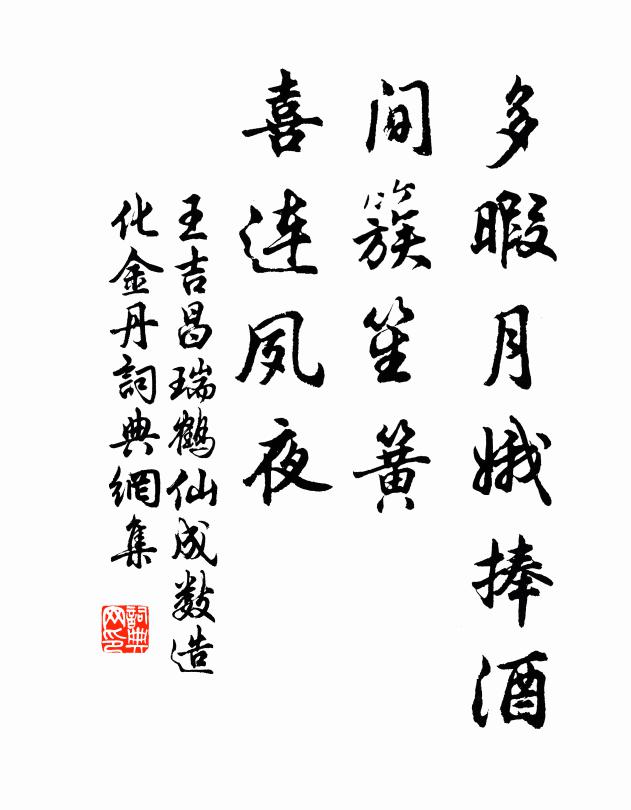 多暇月娥捧酒
间簇笙簧
喜连夙夜
王吉昌瑞鹤仙成数造
化金丹詞典網集
詞典
网印